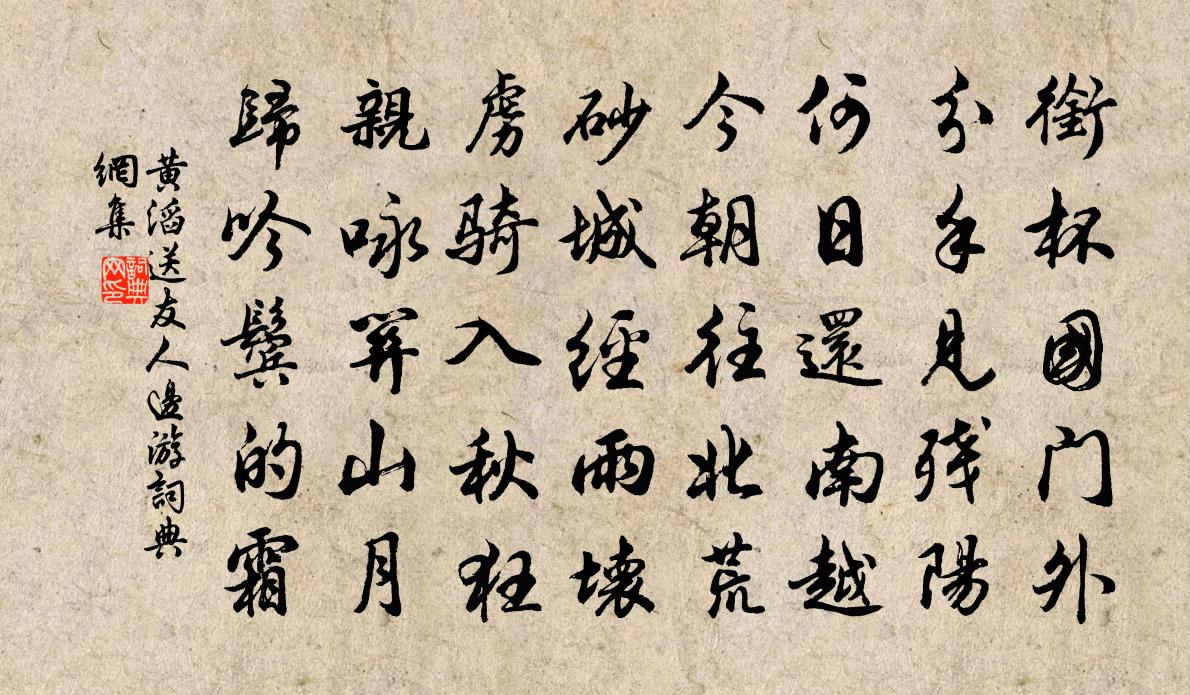 銜杯國门外
分手見残陽
何日還南越
今朝往北荒
砂城經雨壞
虏骑入秋狂
親咏關山月
歸吟鬓的霜
黄滔送友人邊游詞典
網集
詞典網印